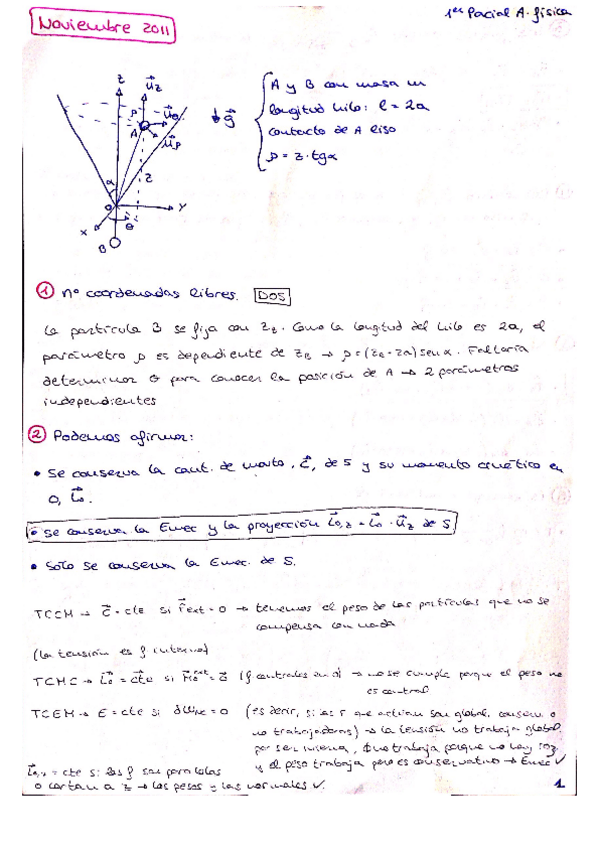 1er Parcial A. física
Noviembre 2011
z
u⃗z
ρ
u⃗θ
A
u⃗ρ
g⃗
α
z
O
y
x
θ
B
A y B con masa m
longitud hilo: l = 2a
contacto de A liso
ρ = z · tgα
① nº coordenadas libres. DOS
La partícula B se fija con zB. Como la longitud del hilo es 2a, el
parámetro ρ es dependiente de zB → ρ = (zB - 2a) senα. Faltaría
determinar θ para conocer la posición de A → 2 parámetros
independientes
② Podemos afirmar:
• Se conserva la cant. de movto, C⃗, de S y su momento cinético en
O, L⃗o.
• Se conserva la Emec y la proyección L⃗o,z = L⃗o · u⃗z de S
• Solo se conserva la Emec. de S.
TCCM → C⃗ = cte si F⃗ext = 0 → tenemos el peso de las partículas que no se
compensa con nada
(la tensión es f interna)
TCMC → L⃗o = cte si M⃗o ext = 0⃗ (f centrales en O) → no se cumple porque el peso no
es central
TCEM → E = cte si dWnc = 0 (es decir, si las f que actúan son global. conserv. o
no trabajadoras) → la tensión no trabaja global.
por ser interna, no trabaja porque no hay roz.
y el peso trabaja pero es conservativo → Emec ✓
L⃗o,z = cte si las f son paralelas
o cortan a z → los pesos y las normales ✓.
1